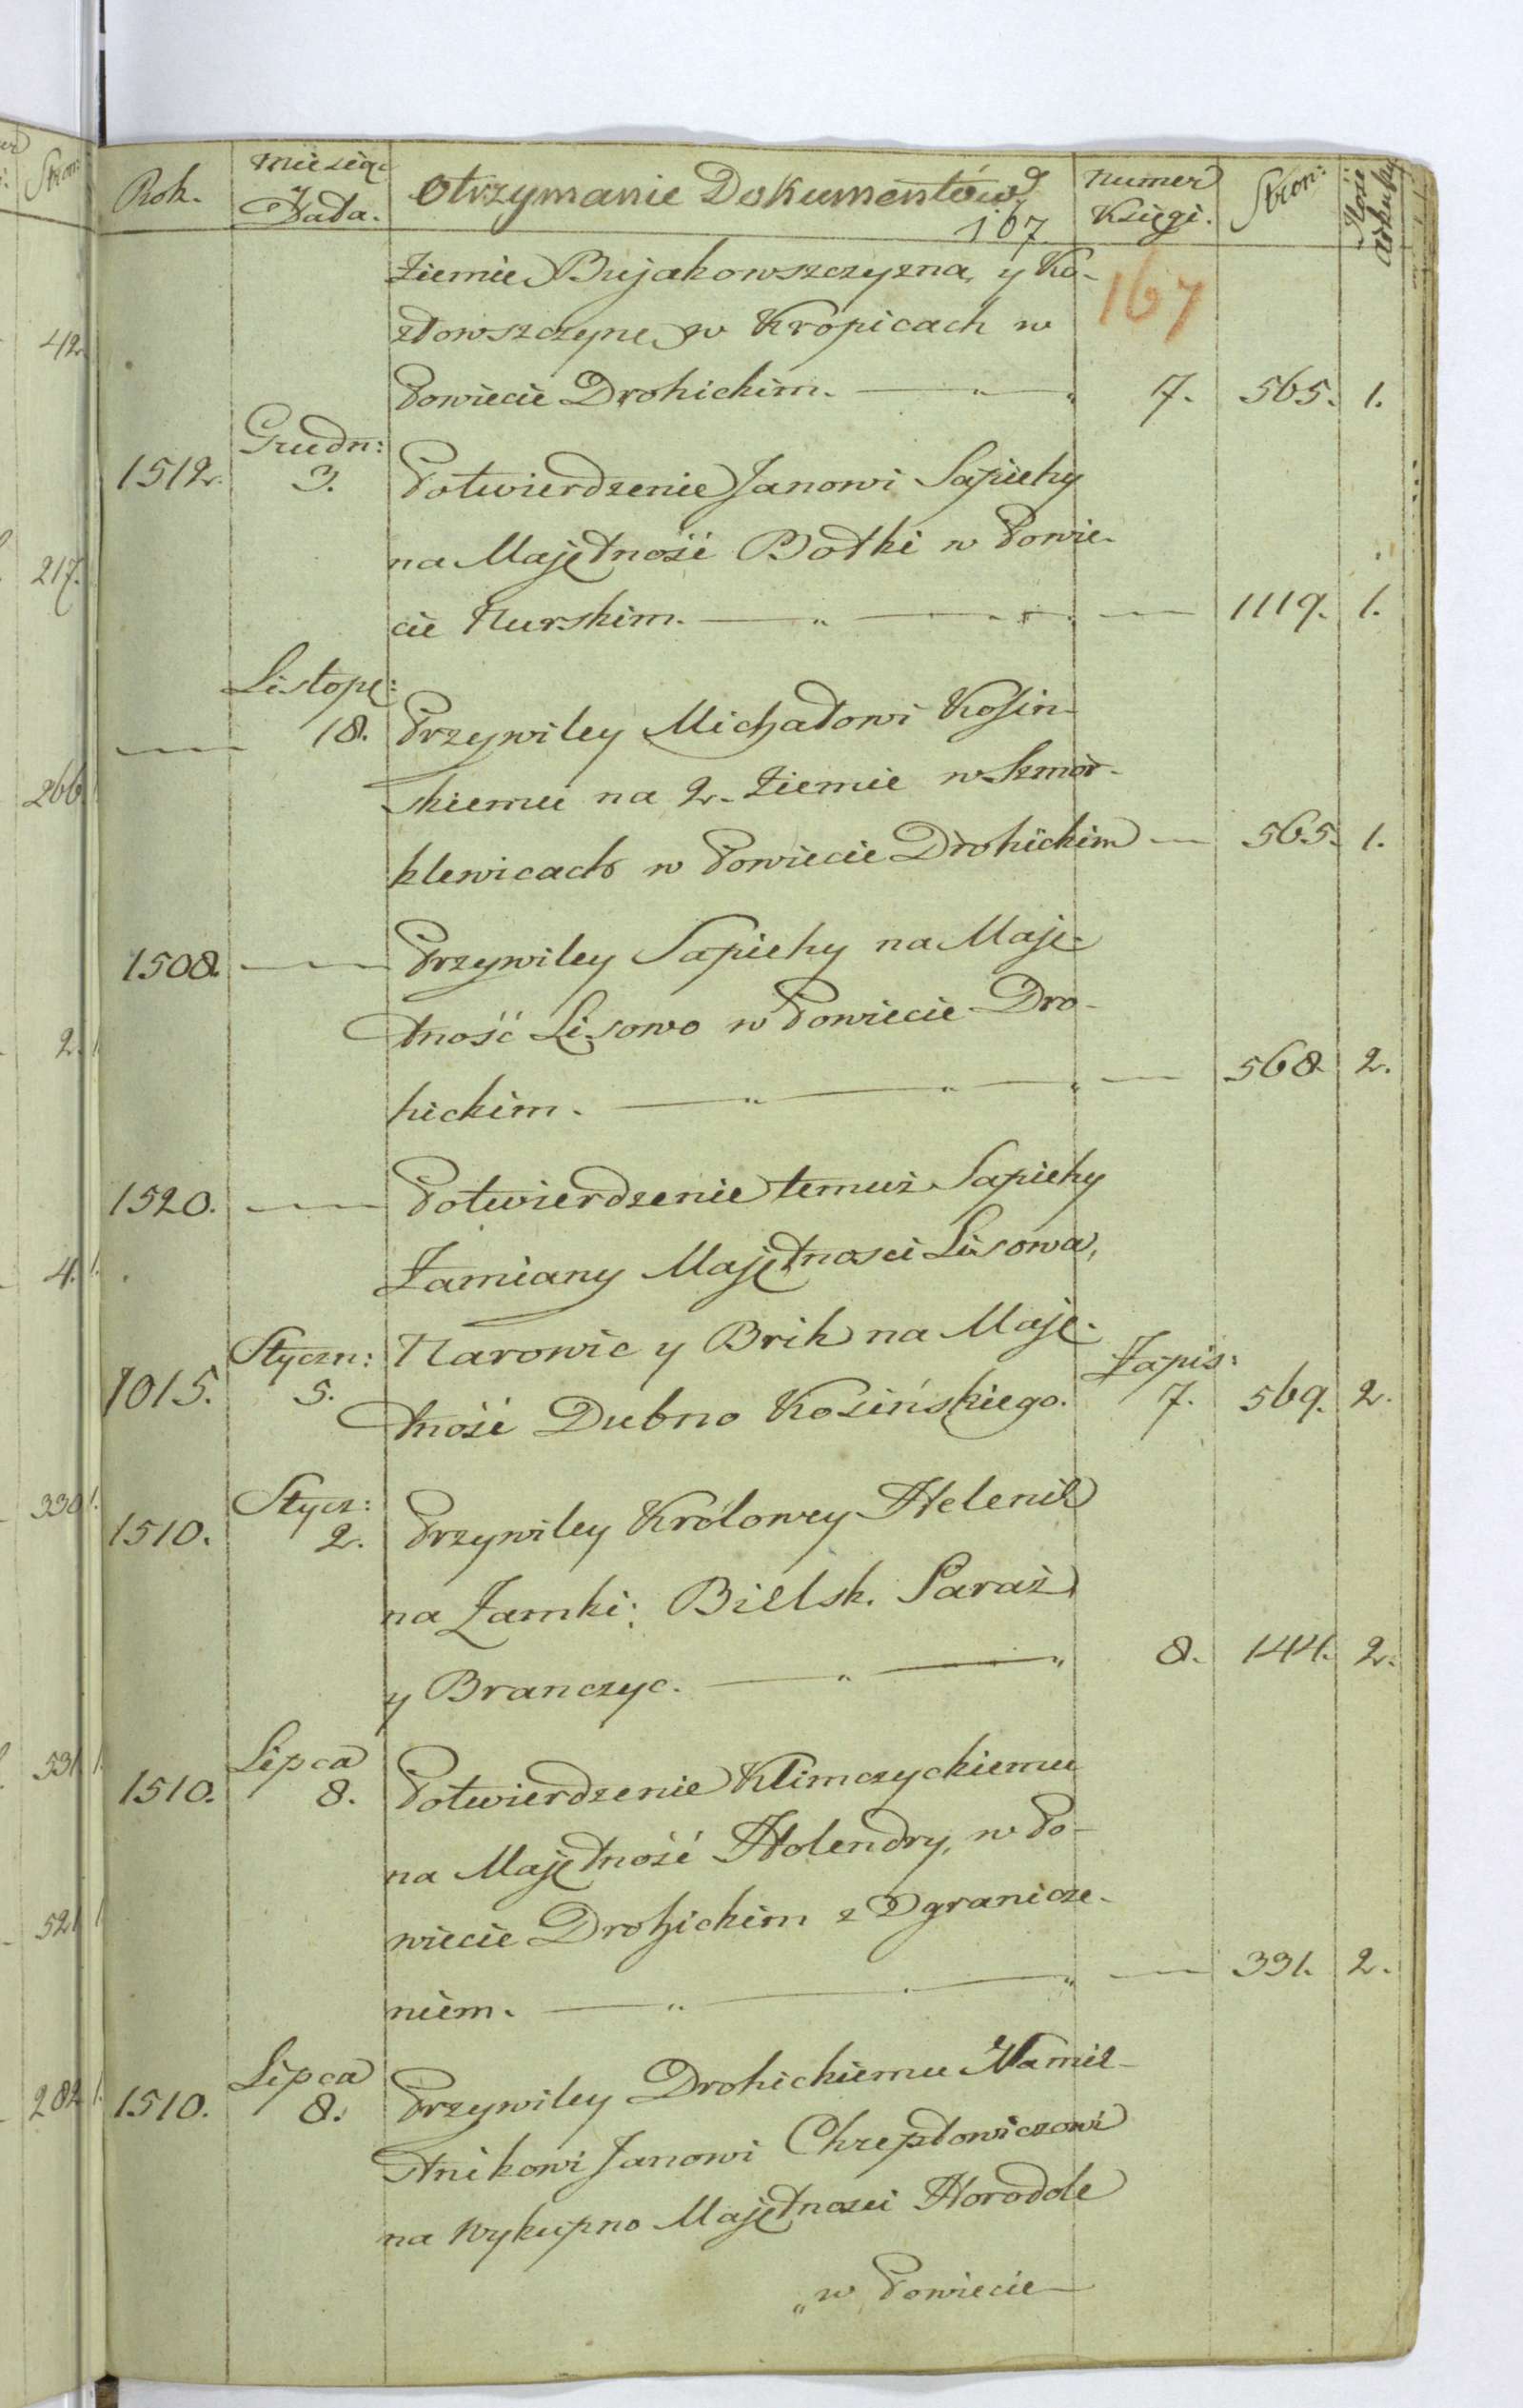 Rok. Miesiąc y Data. Otrzymanie Dokumentów Numer Księgi. Stron: Ilość Arkuszy
167
167
Ziemie Bujakowszczyzna, y Ko-
złowszczyne w Kropicach w
Powiecie Drohickim. 7. 565. 1.
1512. Grudn: 3. Potwierdzenie Janowi Sapiehy
na Majętność Boćki w Powie-
cie Nurskim. 1119. 1.
Listop: 18. Przywiley Michałowi Kosin-
skiemu na 2. Ziemie w Szmor-
klewicach w Powiecie Drohickim 565. 1.
1508. Przywiley Sapiehy na Maję-
tność Lisowo w Powiecie Dro-
hickim. 568. 2.
1520. Potwierdzenie temuż Sapiehy
Zamiany Majętnosci Lisowa,
Narowic y Brik na Maję-
1015. Styczn: 5. tność Dubno Kosińskiego. Zapis: 7. 569. 2.
1510. Stycz: 2. Przywiley Królowey Helenie
na Zamki: Bielsk. Saraż
y Branczyc. 8. 144. 2.
1510. Lipca 8. Potwierdzenie Klimczyckiemu
na Majętność Holendry, w Po-
wiecie Drohickim z Ogranicze-
niem. 331. 2.
1510. Lipca 8. Przywiley Drohickiemu Namie-
stnikowi Janowi Chreptowiczowi
na Wykupno Majętnosci Horodole
„w Powiecie